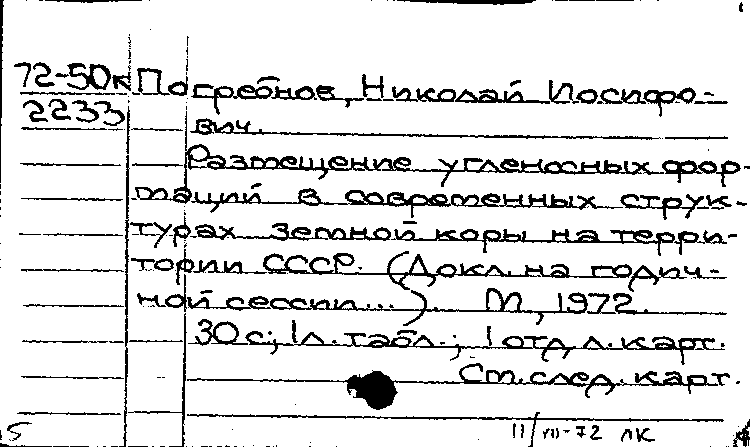 72-50к Погребнов, Николай Иосифо-
2233 вич.
Размещение угленосных фор-
маций в современных струк-
турах земной коры на терри-
тории СССР. (Докл. на годич-
ной сессии...). М, 1972.
30 с; 1 л. табл.; 1 отд. л. карт.
См. след. карт.
5 11/VII-72 ЛК